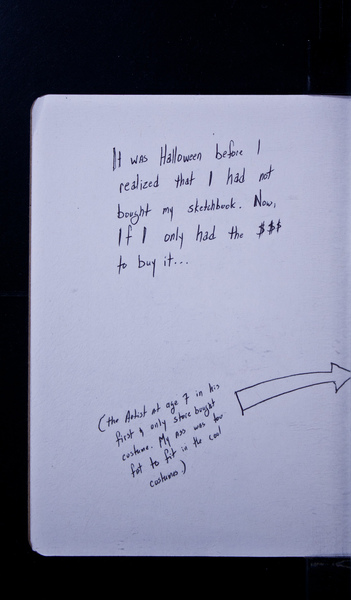 It was Halloween before I
realized that I had not
bought my sketchbook. Now,
If I only had the $$$
to buy it...
(the Artist at age 7 in his
first & only store bought
costume. My ass was too
fat to fit in the cool
costumes.)